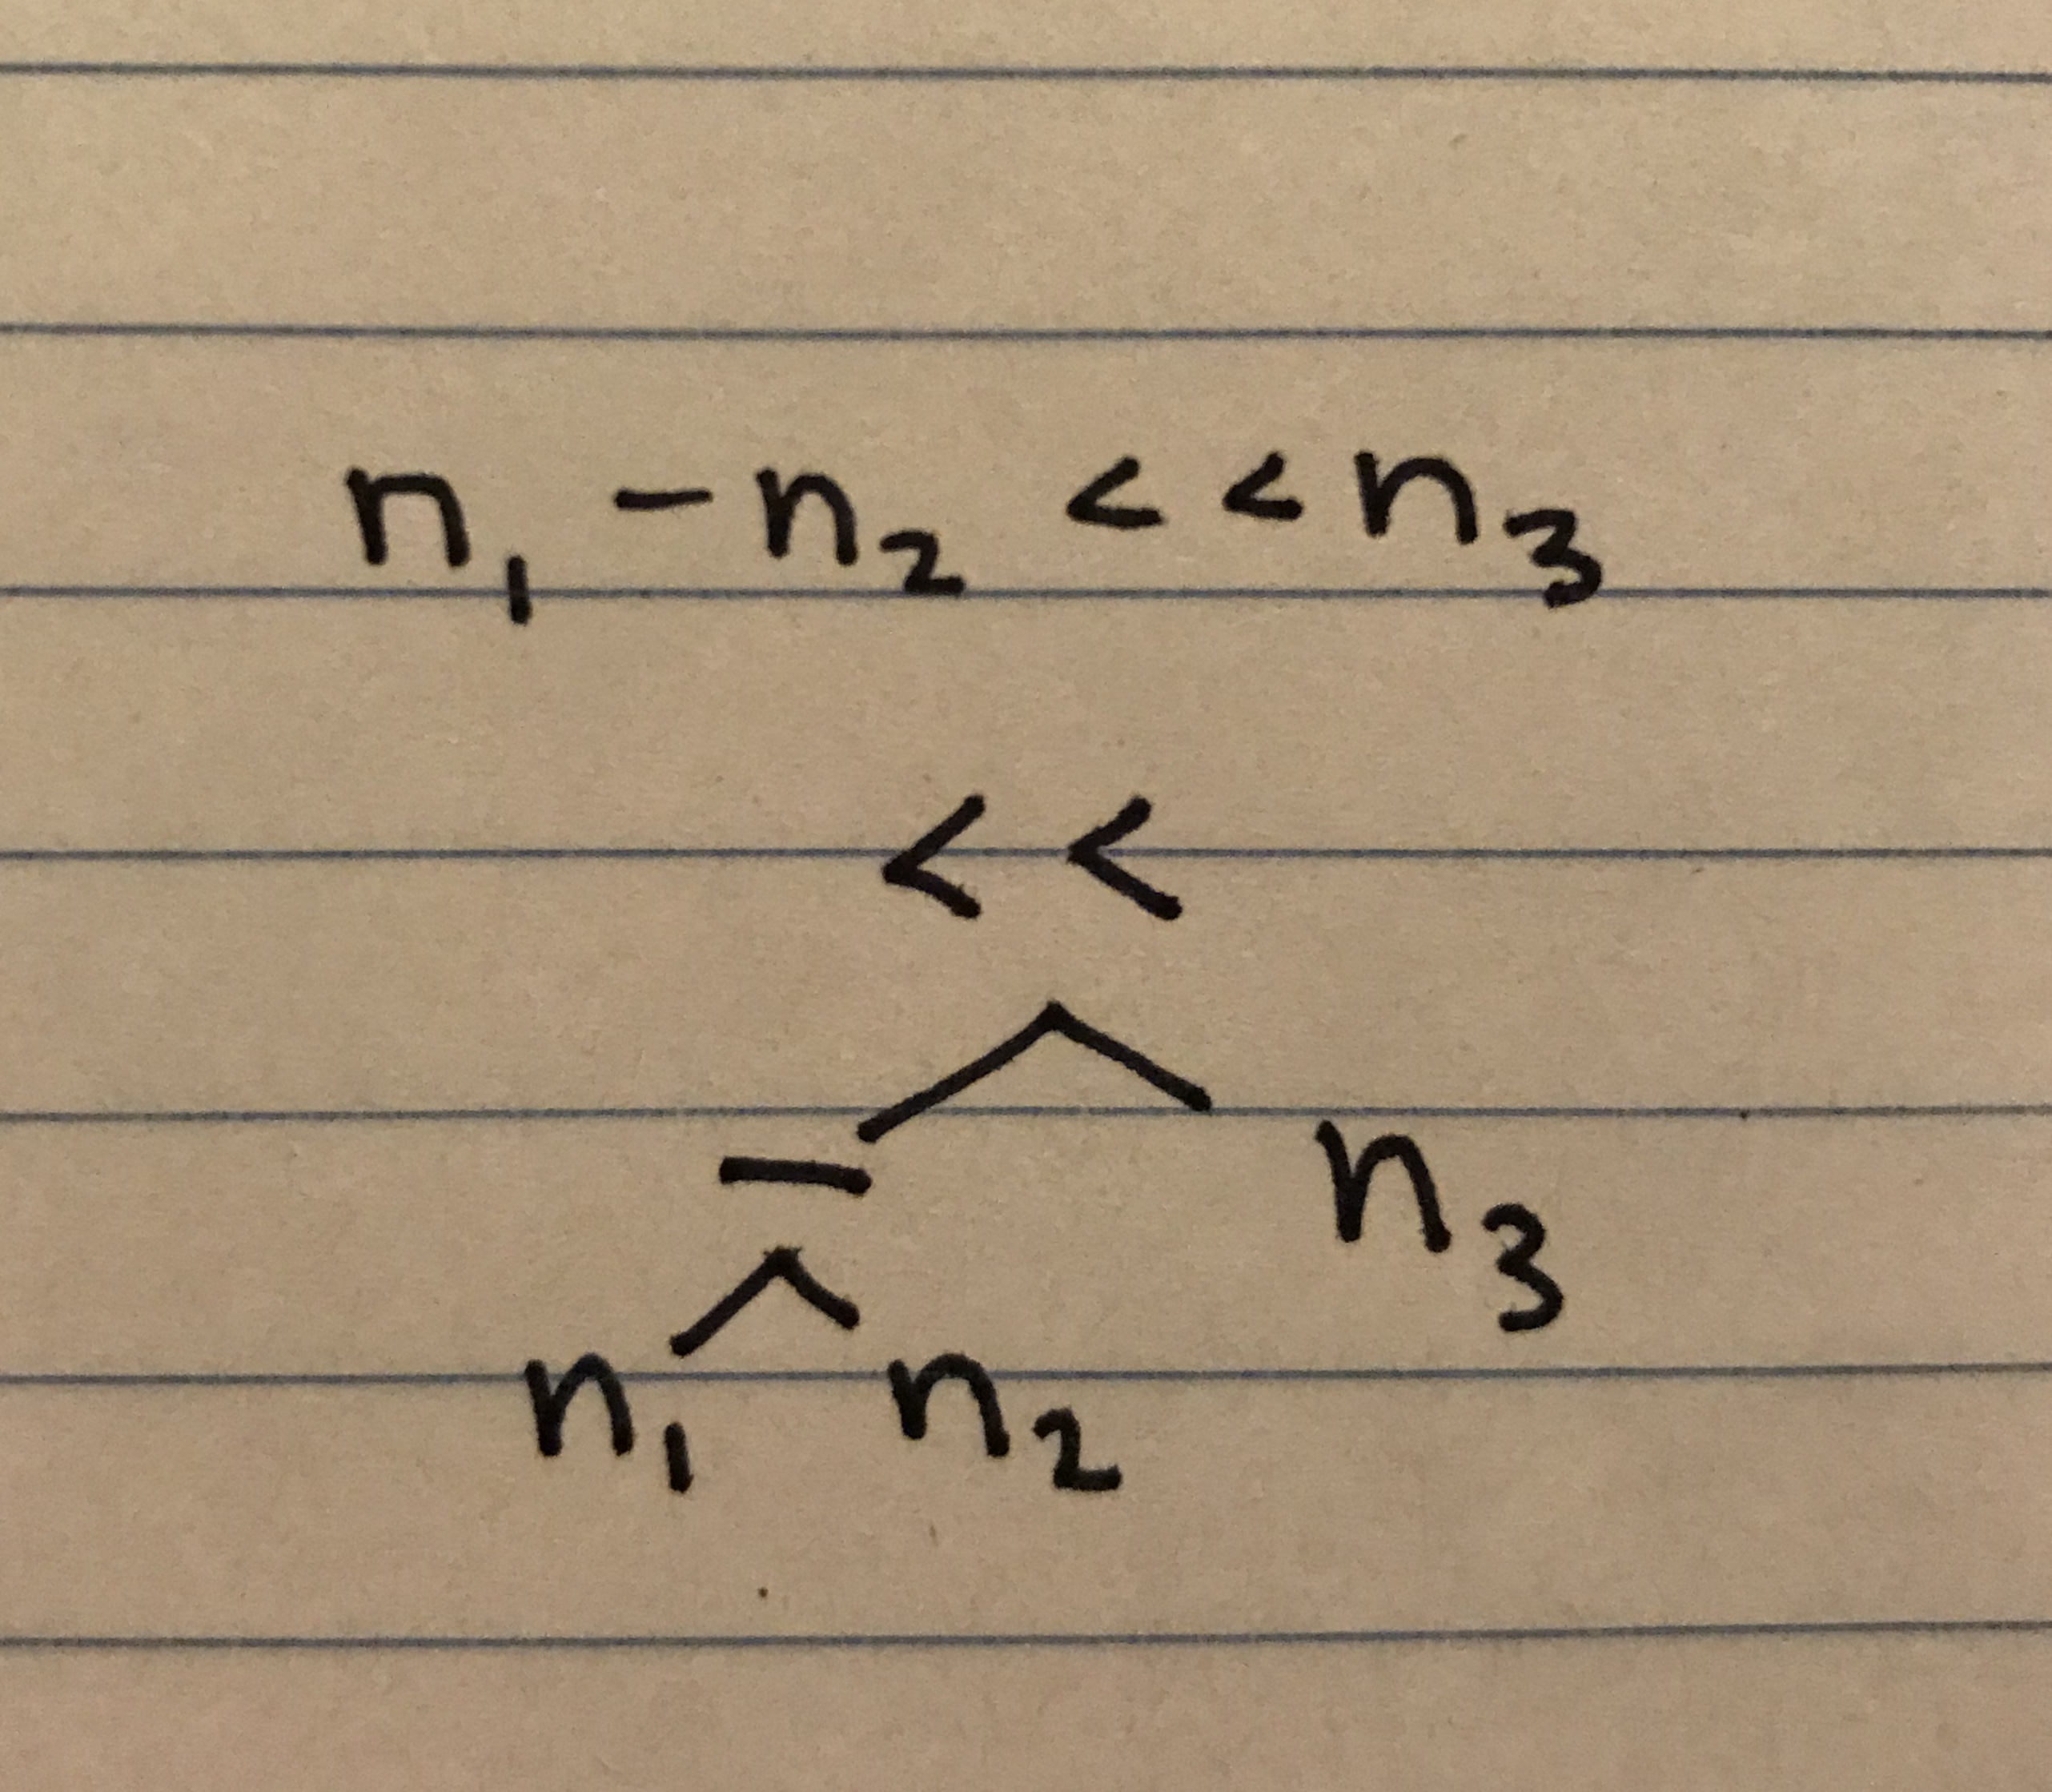 n₁ - n₂ << n₃
<<
- n₃
n₁ n₂